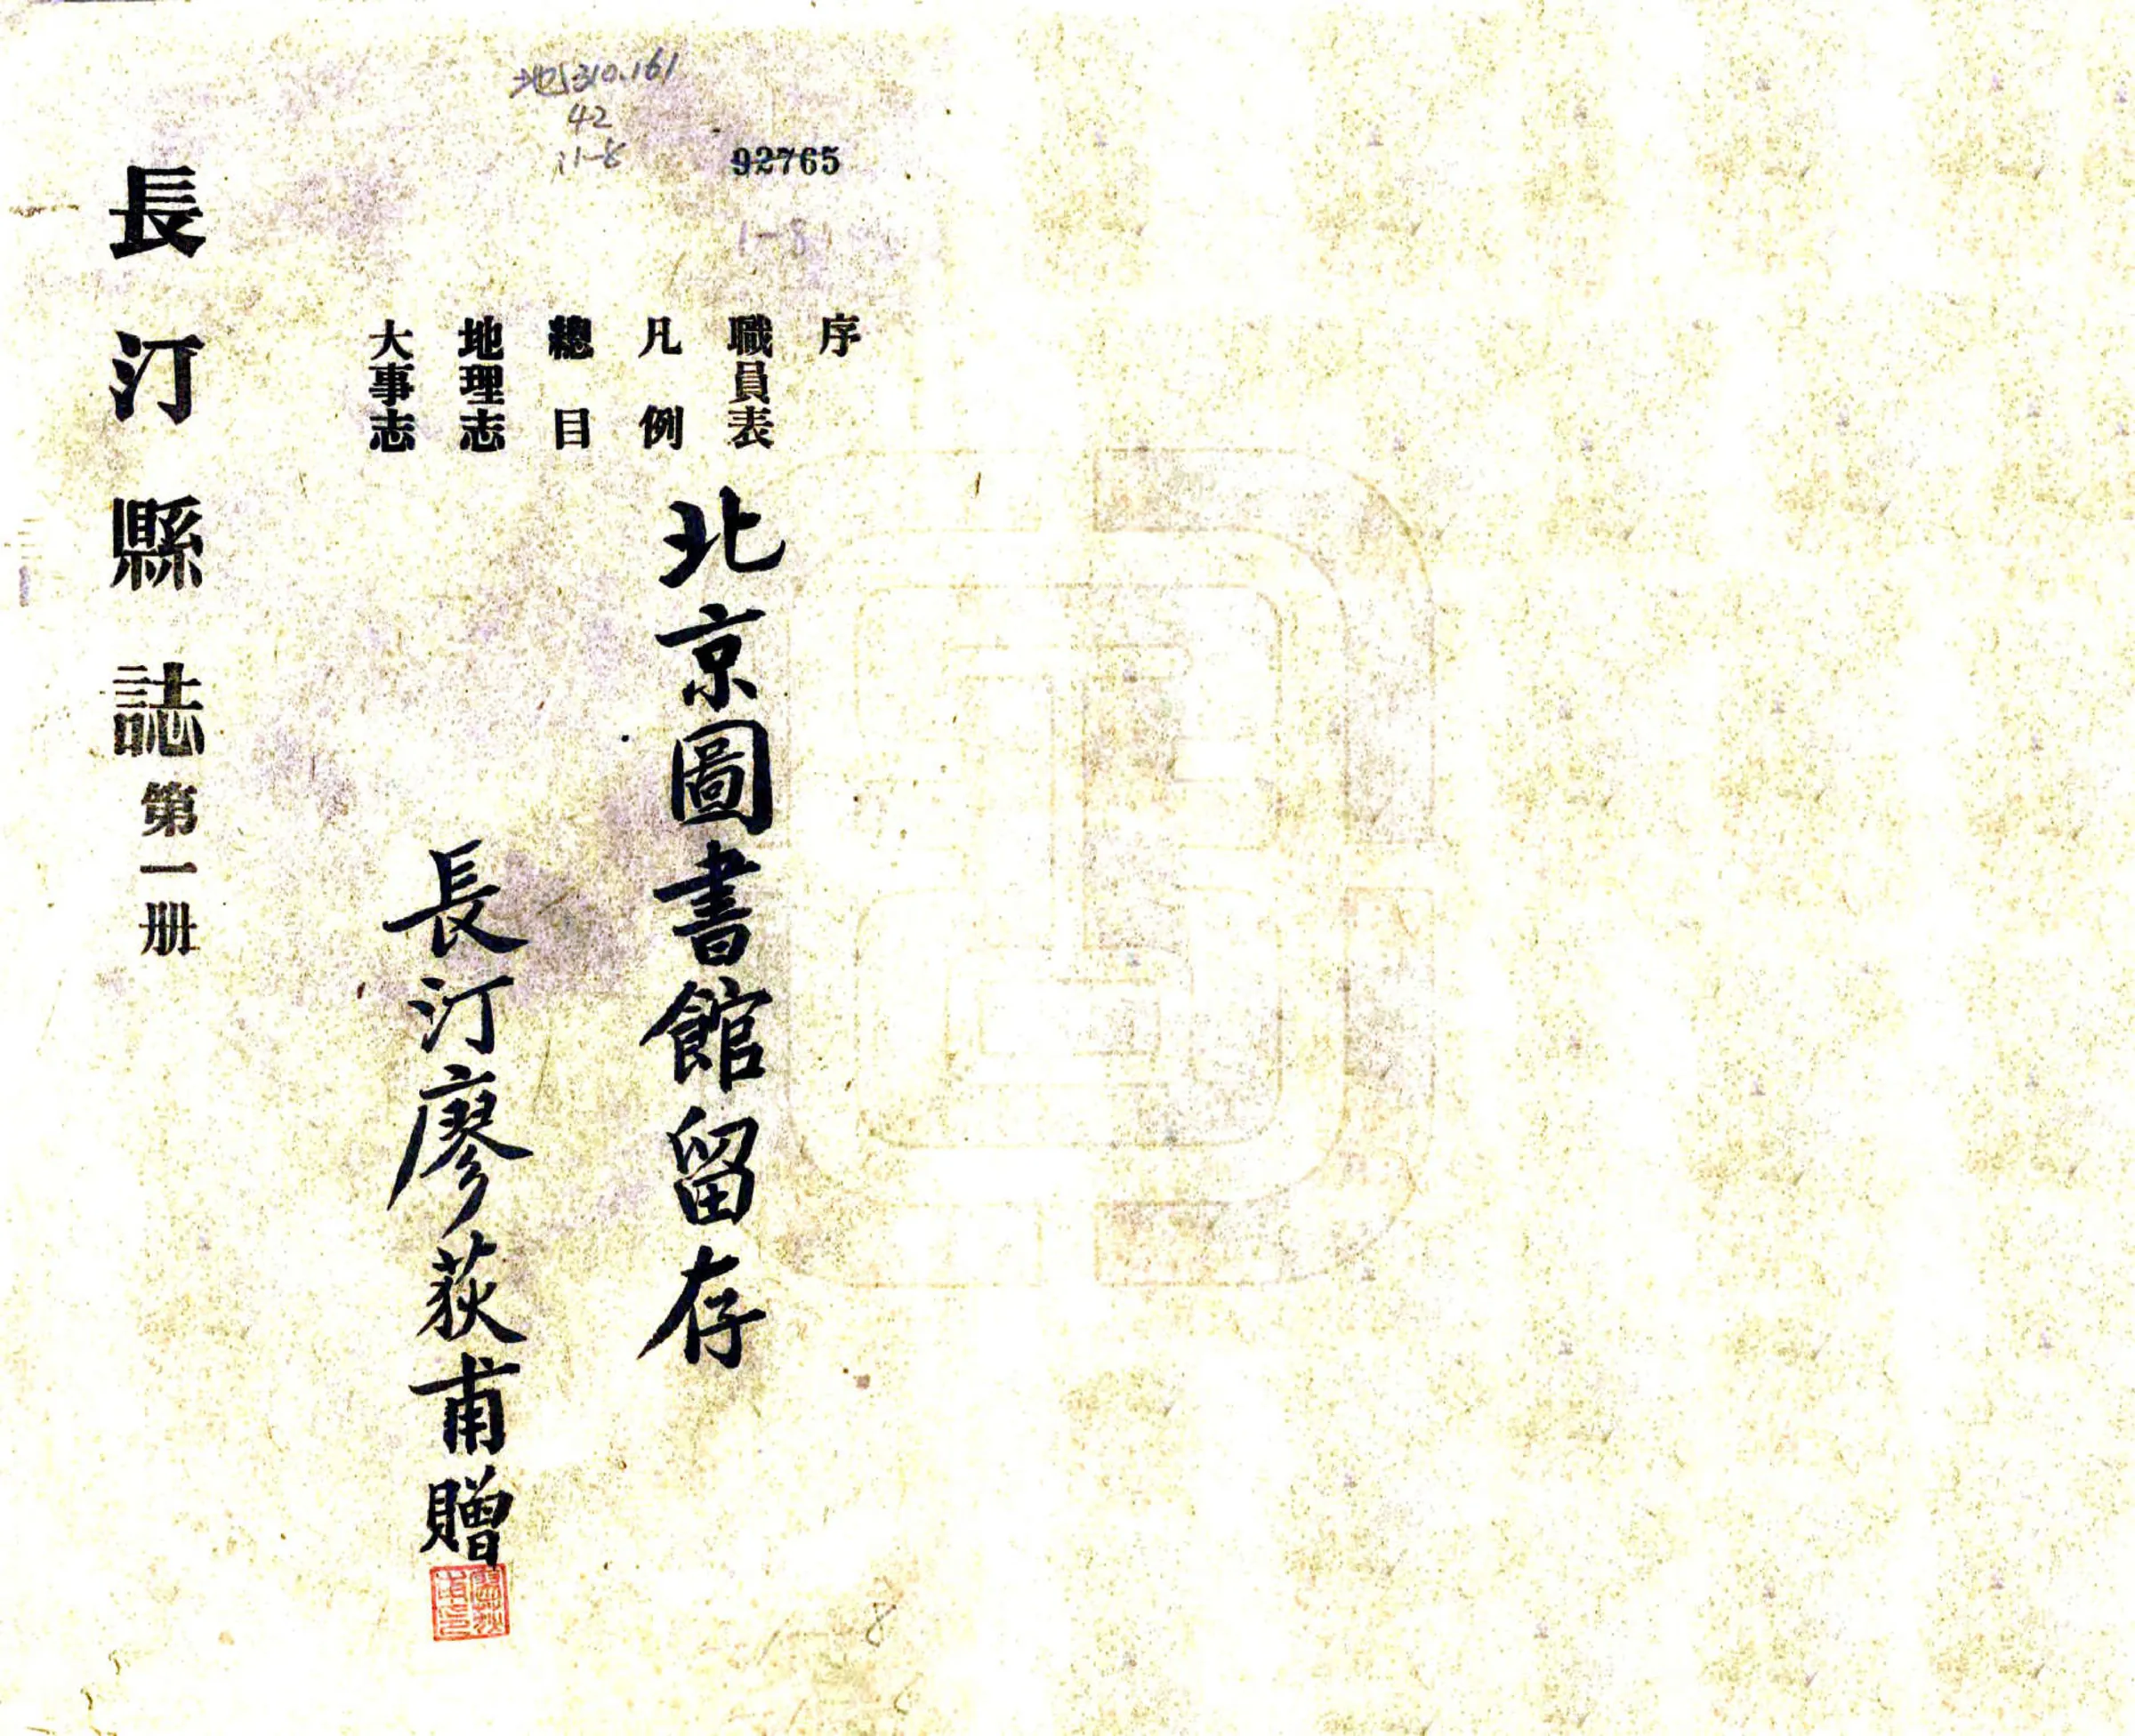 地310.161
42
:1-8
92765
1-8
序
職員表
凡例
總目
地理志
大事志
北京圖書館留存
長汀廖荻甫贈
廖荻甫印
長汀縣誌第一册
1—8